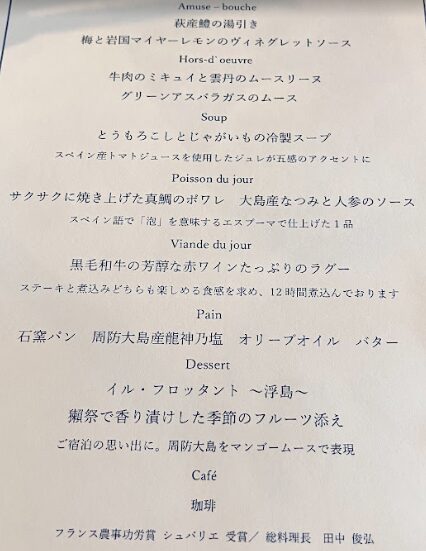 Amuse－bouche
萩産鱧の湯引き
梅と岩国マイヤーレモンのヴィネグレットソース
Hors-d`oeuvre
牛肉のミキュイと雲丹のムースリーヌ
グリーンアスパラガスのムース
Soup
とうもろこしとじゃがいもの冷製スープ
スペイン産トマトジュースを使用したジュレが五感のアクセントに
Poisson du jour
サクサクに焼き上げた真鯛のポワレ　大島産なつみと人参のソース
スペイン語で「泡」を意味するエスプーマで仕上げた１品
Viande du jour
黒毛和牛の芳醇な赤ワインたっぷりのラグー
ステーキと煮込みどちらも楽しめる食感を求め、12時間煮込んでおります
Pain
石窯パン　周防大島産龍神乃塩　オリーブオイル　バター
Dessert
イル・フロッタント ～浮島～
獺祭で香り漬けした季節のフルーツ添え
ご宿泊の思い出に。周防大島をマンゴームースで表現
Café
珈琲
フランス農事功労賞 シュバリエ 受賞／ 総料理長　田中 俊弘